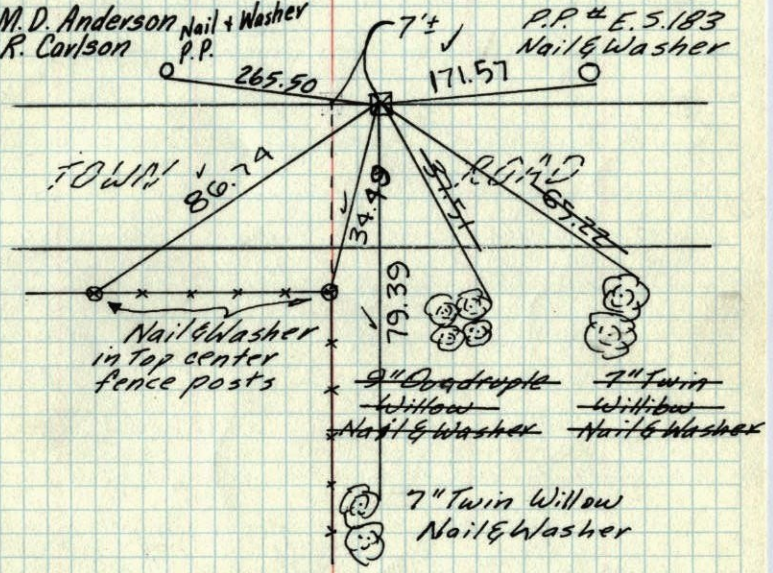 M.D. Anderson
R. Carlson
Nail & Washer
P.P.
7'±
P.P. # E.S. 183
Nail & Washer
265.50
171.57
TOWN
ROAD
86.74
34.49
37.51
65.22
79.39
Nail & Washer
in Top center
fence posts
9" Quadruple
Willow
Nail & Washer
7" Twin
Willibw
Nail & Washer
7" Twin Willow
Nail & Washer